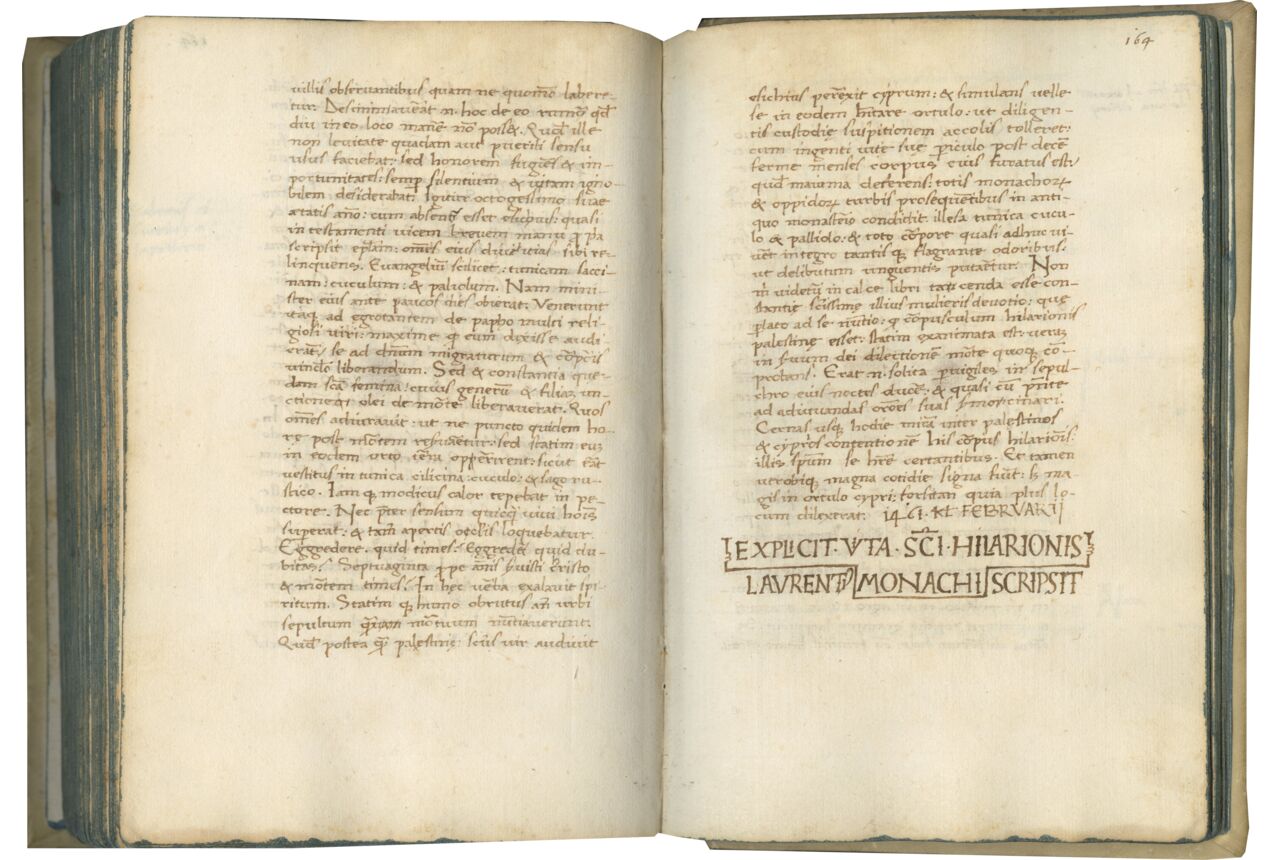 villis observantibus quam ne quomo labere-
tur. Desciminaverat n. hoc de eo rumor qd
diu in eo loco manere non posset. Quod ille
non levitate quadam aut puerili sensu
usus faciebat: sed honorem fugiens & im-
portunitates: semper silentium & vitam igno-
bilem desiderabat. Igitur octogessimo suae
aetatis ano: cum absens esset esicyus: quasi
in testamenti vicem brevem manu ppa
scripsit eplam: omes eius divitias sibi re-
linquens. Evangelium scilicet: tunicam sacci-
nam: cuculum: & paliolum. Nam mini-
ster eius ante paucos dies obierat. Venerunt
itaq ad egrotantem de papho multi reli-
giosi viri: maxime q eum dixisse audi-
erant se ad dnum migraturum & corporis
vinclo liberandum. Sed & constantia que-
dam sca femina: cuius generum & filiam un-
ctione olei de morte liberaverat. Quos
omes adiuravit: ut ne puncto quidem ho-
re post mortem reservaretur: sed statim eum
in eodem orto terra opperirent: sicut erat
vestitus in tunica cilicina: cuculo: & sago ru-
stico. Iam q modicus calor tepebat in pe-
ctore. Nec preter sensum quicq vivi hois
superat: & tam apertis oculis loquebatur.
Eggredere. quid times? Eggredere quid du-
bitas? Septuaginta prope anis servisti cristo
& mortem times? In hec verba exalavit spi-
ritum. Statim q humo obrutus an urbi
sepultum quam mortuum nuntiaverunt.
Quod postea q palestine: scus vir audivit
164
esichius perexit cyprum: & simulans velle
se in eodem hitare ortulo: ut diligen-
tis custodie suspitionem accolis tolleret:
cum ingenti vite sue piculo post decem
ferme menses corpus eius furatus est:
quod maiuma deferens: totis monachorum
& oppidorum turbis prosequentibus in anti-
quo monasterio condidit. illesa tunica cucu-
lo & palliolo: & toto corpore quasi adhuc vi-
veret integro tantis q flagrante odoribus:
ut delibutum unguentis putaretur. Non
m videtur in calce libri tacenda esse con-
stantie scissime illius mulieris devotio: que
plato ad se nuntio: q corpusculum hilarionis
palestine esset: statim exanimata est: veram
in servum dei dilectionem morte quoq com-
probans. Erat n. solita pvigiles in sepul-
chro eius noctes ducere: & quasi cum pnte
ad adiuvandas orones suas sermocinari.
Cernas usq hodie miram inter palestinos
& cyprios contentionem his corpus hilarionis:
illis spum se hre certantibus. Et tamen
utrobiq magna cotidie signa fiunt: h ma-
gis in ortulo cypri: forsitan quia plus lo-
cum dilexerat. 1461. KL FEBRVARII
EXPLICIT · VITA · SCI · HILARIONIS
LAVRENTIVS MONACHI SCRIPSIT